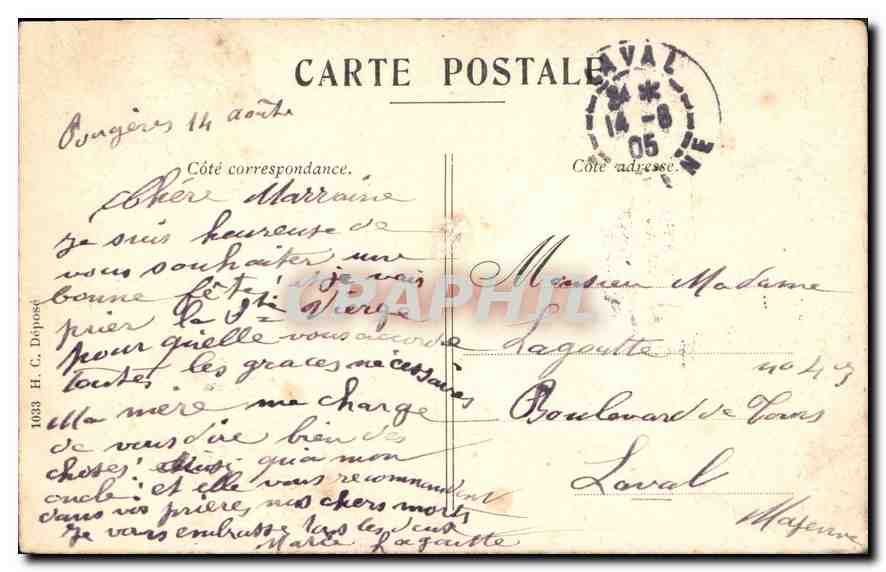 CARTE POSTALE
LAVAL
14-8
05
NE
Fougères 14 août
Côté correspondance.
Côté adresse.
Chère Marraine
Je suis heureuse de
vous souhaiter une
bonne fête! je vais
prier la Ste Vierge
pour qu'elle vous accorde
toutes les graces nécessaires
Ma mère me charge
de vous dire bien des
choses! ainsi qu'à mon
oncle! et elle vous recommandent
dans vos prières nos chers morts
Je vous embrasse tous les deux
Marie Lagoutte
Monsieur Madame
Lagoutte
no 43
Boulevard de Tours
Laval
Mayenne
1033 H. C. Déposé
CRAPHIL